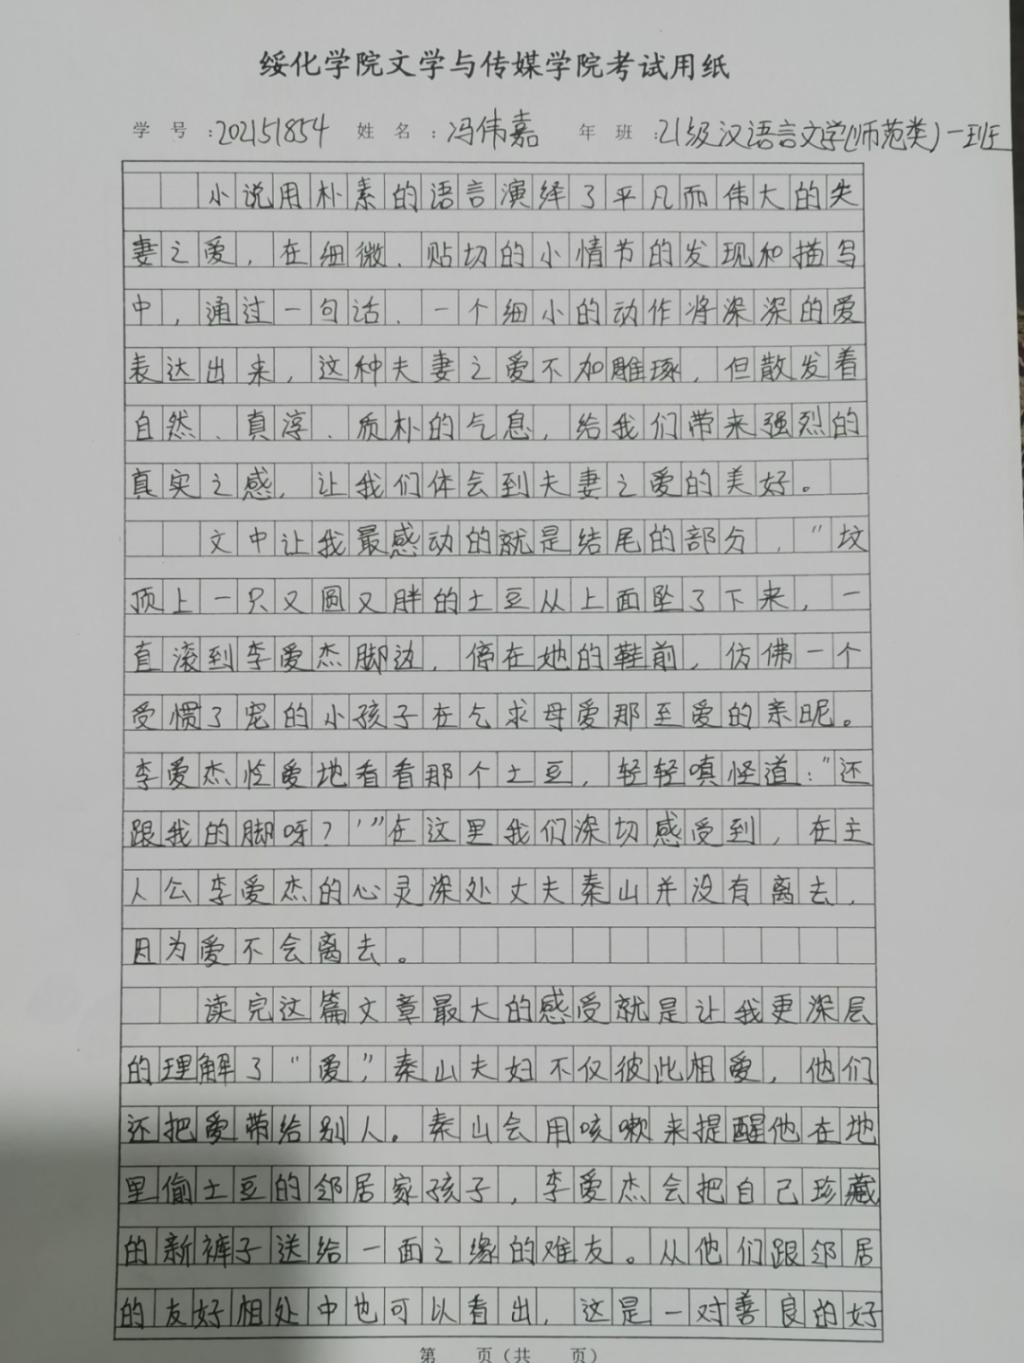 绥化学院文学与传媒学院考试用纸
学号:202151854 姓名:冯伟嘉 年班:21级汉语言文学(师范类)一班
小说用朴素的语言演绎了平凡而伟大的失
妻之爱,在细微、贴切的小情节的发现和描写
中,通过一句话、一个细小的动作将深深的爱
表达出来,这种夫妻之爱不加雕琢,但散发着
自然、真淳、质朴的气息,给我们带来强烈的
真实之感,让我们体会到夫妻之爱的美好。
文中让我最感动的就是结尾的部分,"坟
顶上一只又圆又胖的土豆从上面坠了下来,一
直滚到李爱杰脚边,停在她的鞋前,仿佛一个
受惯了宠的小孩子在乞求母爱那至爱的亲昵。
李爱杰怜爱地看看那个土豆,轻轻嗔怪道:"还
跟我的脚呀?'"在这里我们深切感受到,在主
人公李爱杰的心灵深处丈夫秦山并没有离去,
因为爱不会离去。
读完这篇文章最大的感受就是让我更深层
的理解了"爱",秦山夫妇不仅彼此相爱,他们
还把爱带给别人。秦山会用咳嗽来提醒他在地
里偷土豆的邻居家孩子,李爱杰会把自己珍藏
的新裤子送给一面之缘的难友。从他们跟邻居
的友好相处中也可以看出,这是一对善良的好
第 页(共 页)